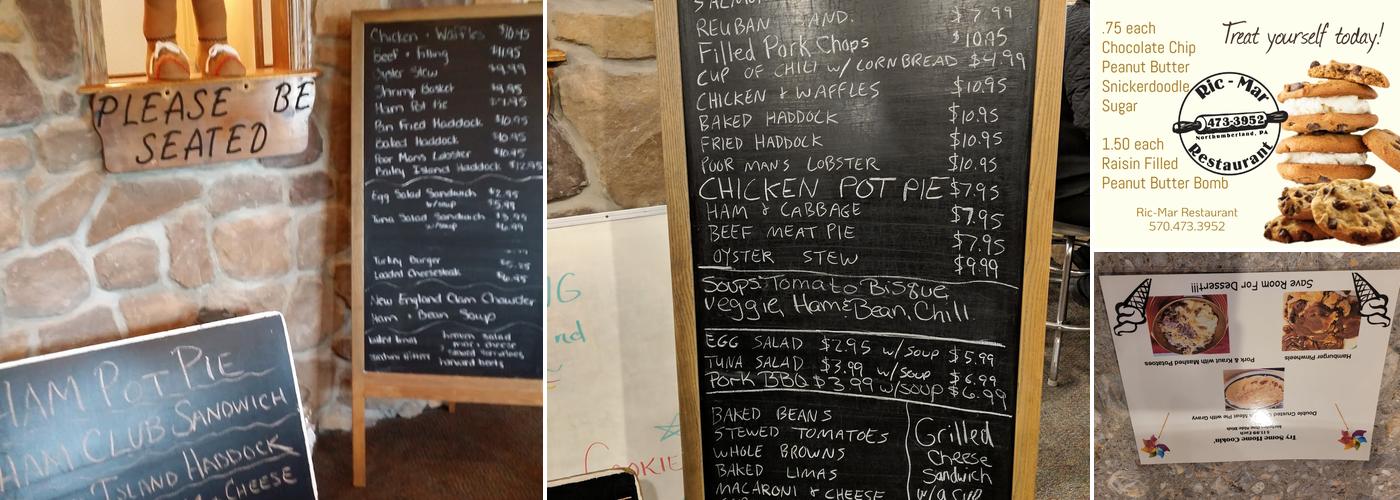 PLEASE BE
SEATED
Chicken + Waffles $10.95
Beef + Filling $11.95
Oyster Stew $9.99
Shrimp Basket $8.95
Ham Pot Pie
Pan Fried Haddock $10.95
Baked Haddock $10.95
Poor Mans Lobster $10.95
Island Haddock $12.95
Egg Salad Sandwich $2.95
w/soup $5.99
Tuna Salad Sandwich $3.95
w/soup $6.99
Turkey Burger
Loaded Cheesesteak $6.95
New England Clam Chowder
Ham + Bean Soup
baked limas
mac + cheese
stewed tomatoes
harvard beets
HAM POT PIE
HAM CLUB SANDWICH
ISLAND HADDOCK
CHEESE
REUBAN SAND. $7.99
Filled Pork Chops $10.95
CUP OF CHILI w/ CORNBREAD $4.99
CHICKEN & WAFFLES $10.95
BAKED HADDOCK $10.95
FRIED HADDOCK $10.95
POOR MAN'S LOBSTER $10.95
CHICKEN POT PIE $7.95
HAM & CABBAGE $7.95
BEEF MEAT PIE $7.95
OYSTER STEW $9.99
Soups: Tomato Bisque
Veggie, Ham&Bean, Chili
EGG SALAD $2.95 w/soup $5.99
TUNA SALAD $3.99 w/soup $6.99
Pork BBQ $3.99 w/soup $6.99
BAKED BEANS
STEWED TOMATOES
WHOLE BROWNS
BAKED LIMAS
MACARONI & CHEESE
Grilled
Cheese
Sandwich
w/a cup
COOKIE
.75 each
Chocolate Chip
Peanut Butter
Snickerdoodle
Sugar
1.50 each
Raisin Filled
Peanut Butter Bomb
Treat yourself today!
Ric-Mar
473-3952
Northumberland, PA
Restaurant
Ric-Mar Restaurant
570.473.3952
Try Some Home Cookin'
Double Crusted Meat Pie with Gravy
Hamburger Pinwheels
Pork & Kraut with Mashed Potatoes
Save Room For Dessert!!!